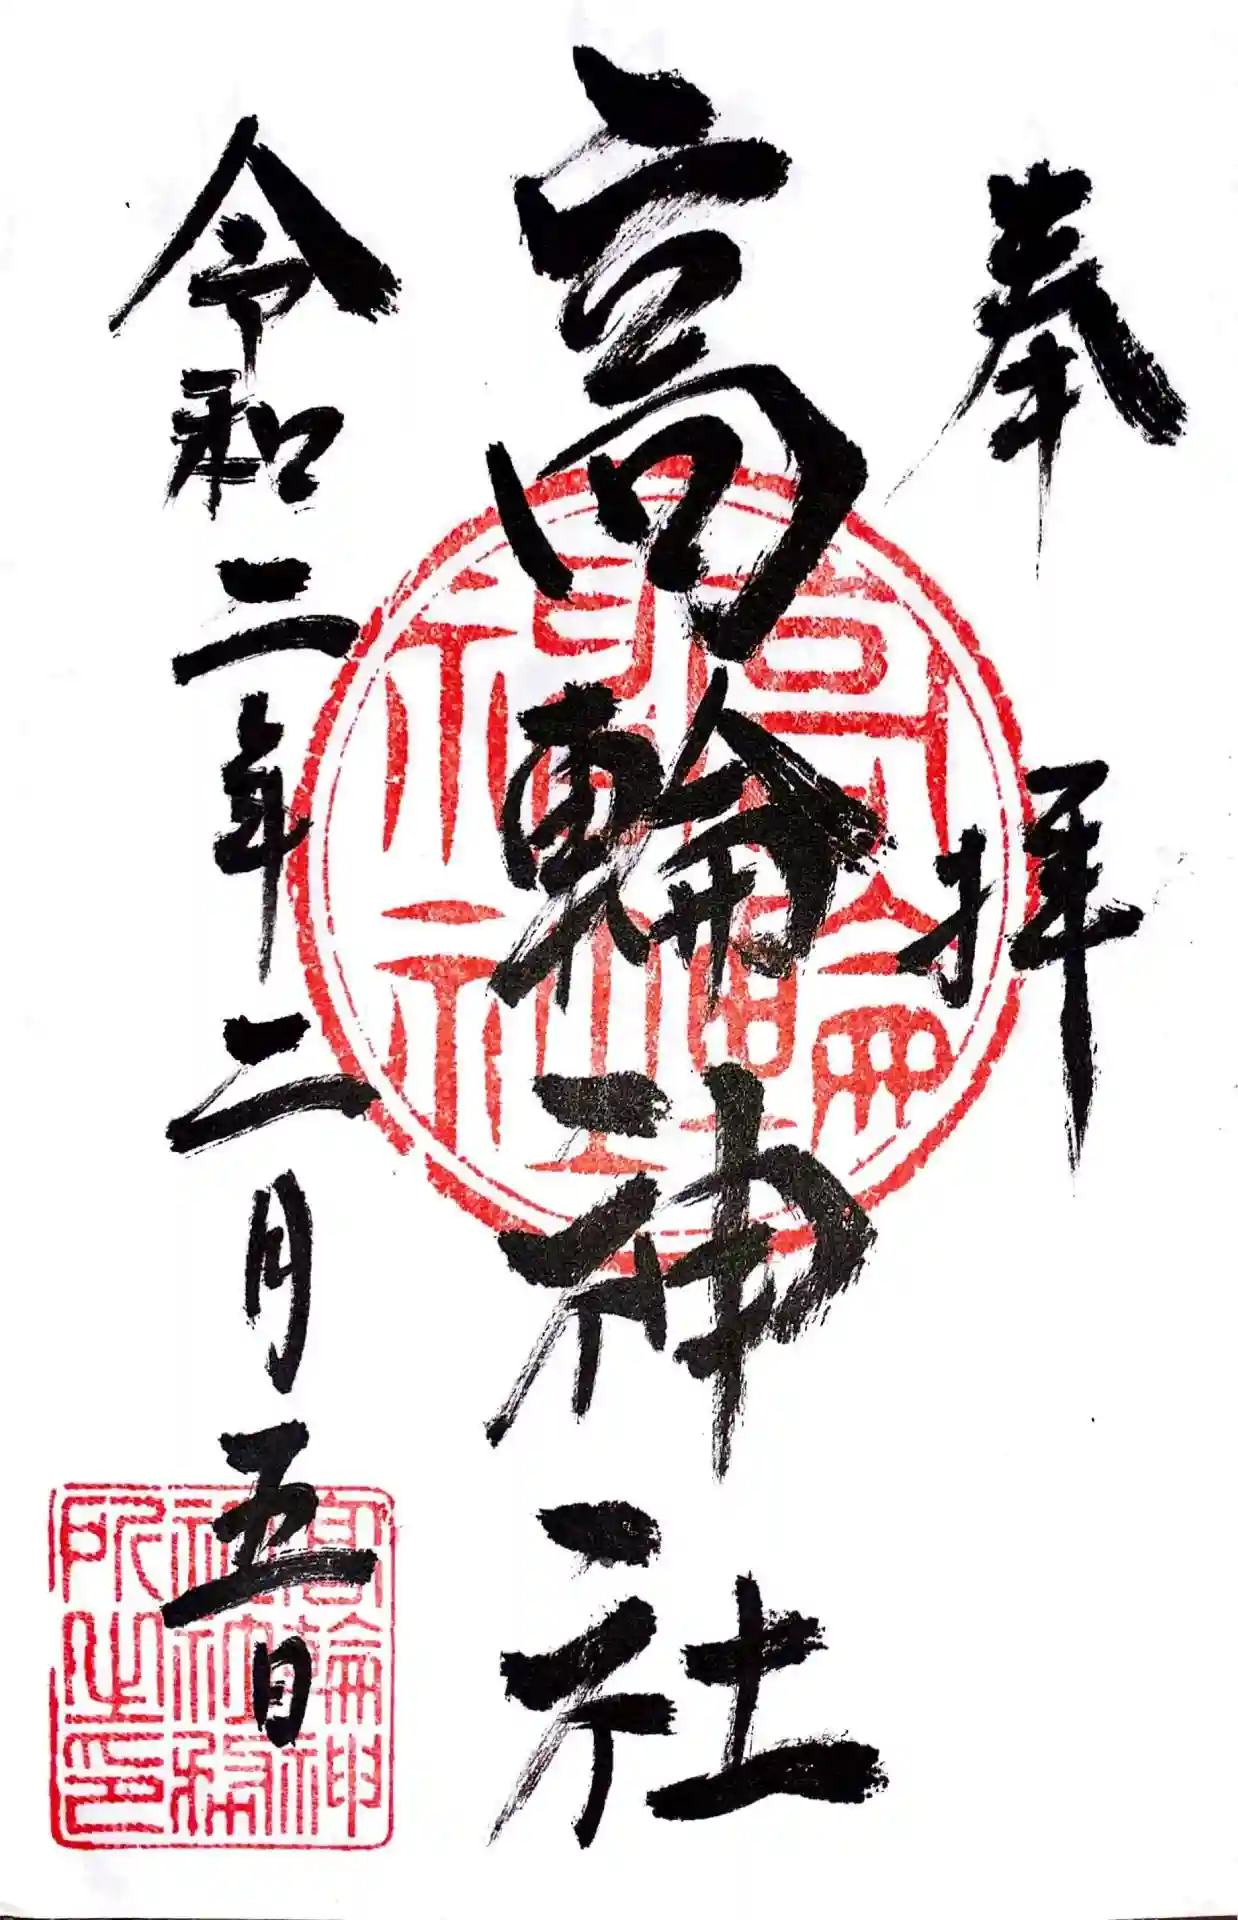 奉拝
高輪神社
令和二年二月五日
高輪神社
高輪神
社社務
所之印